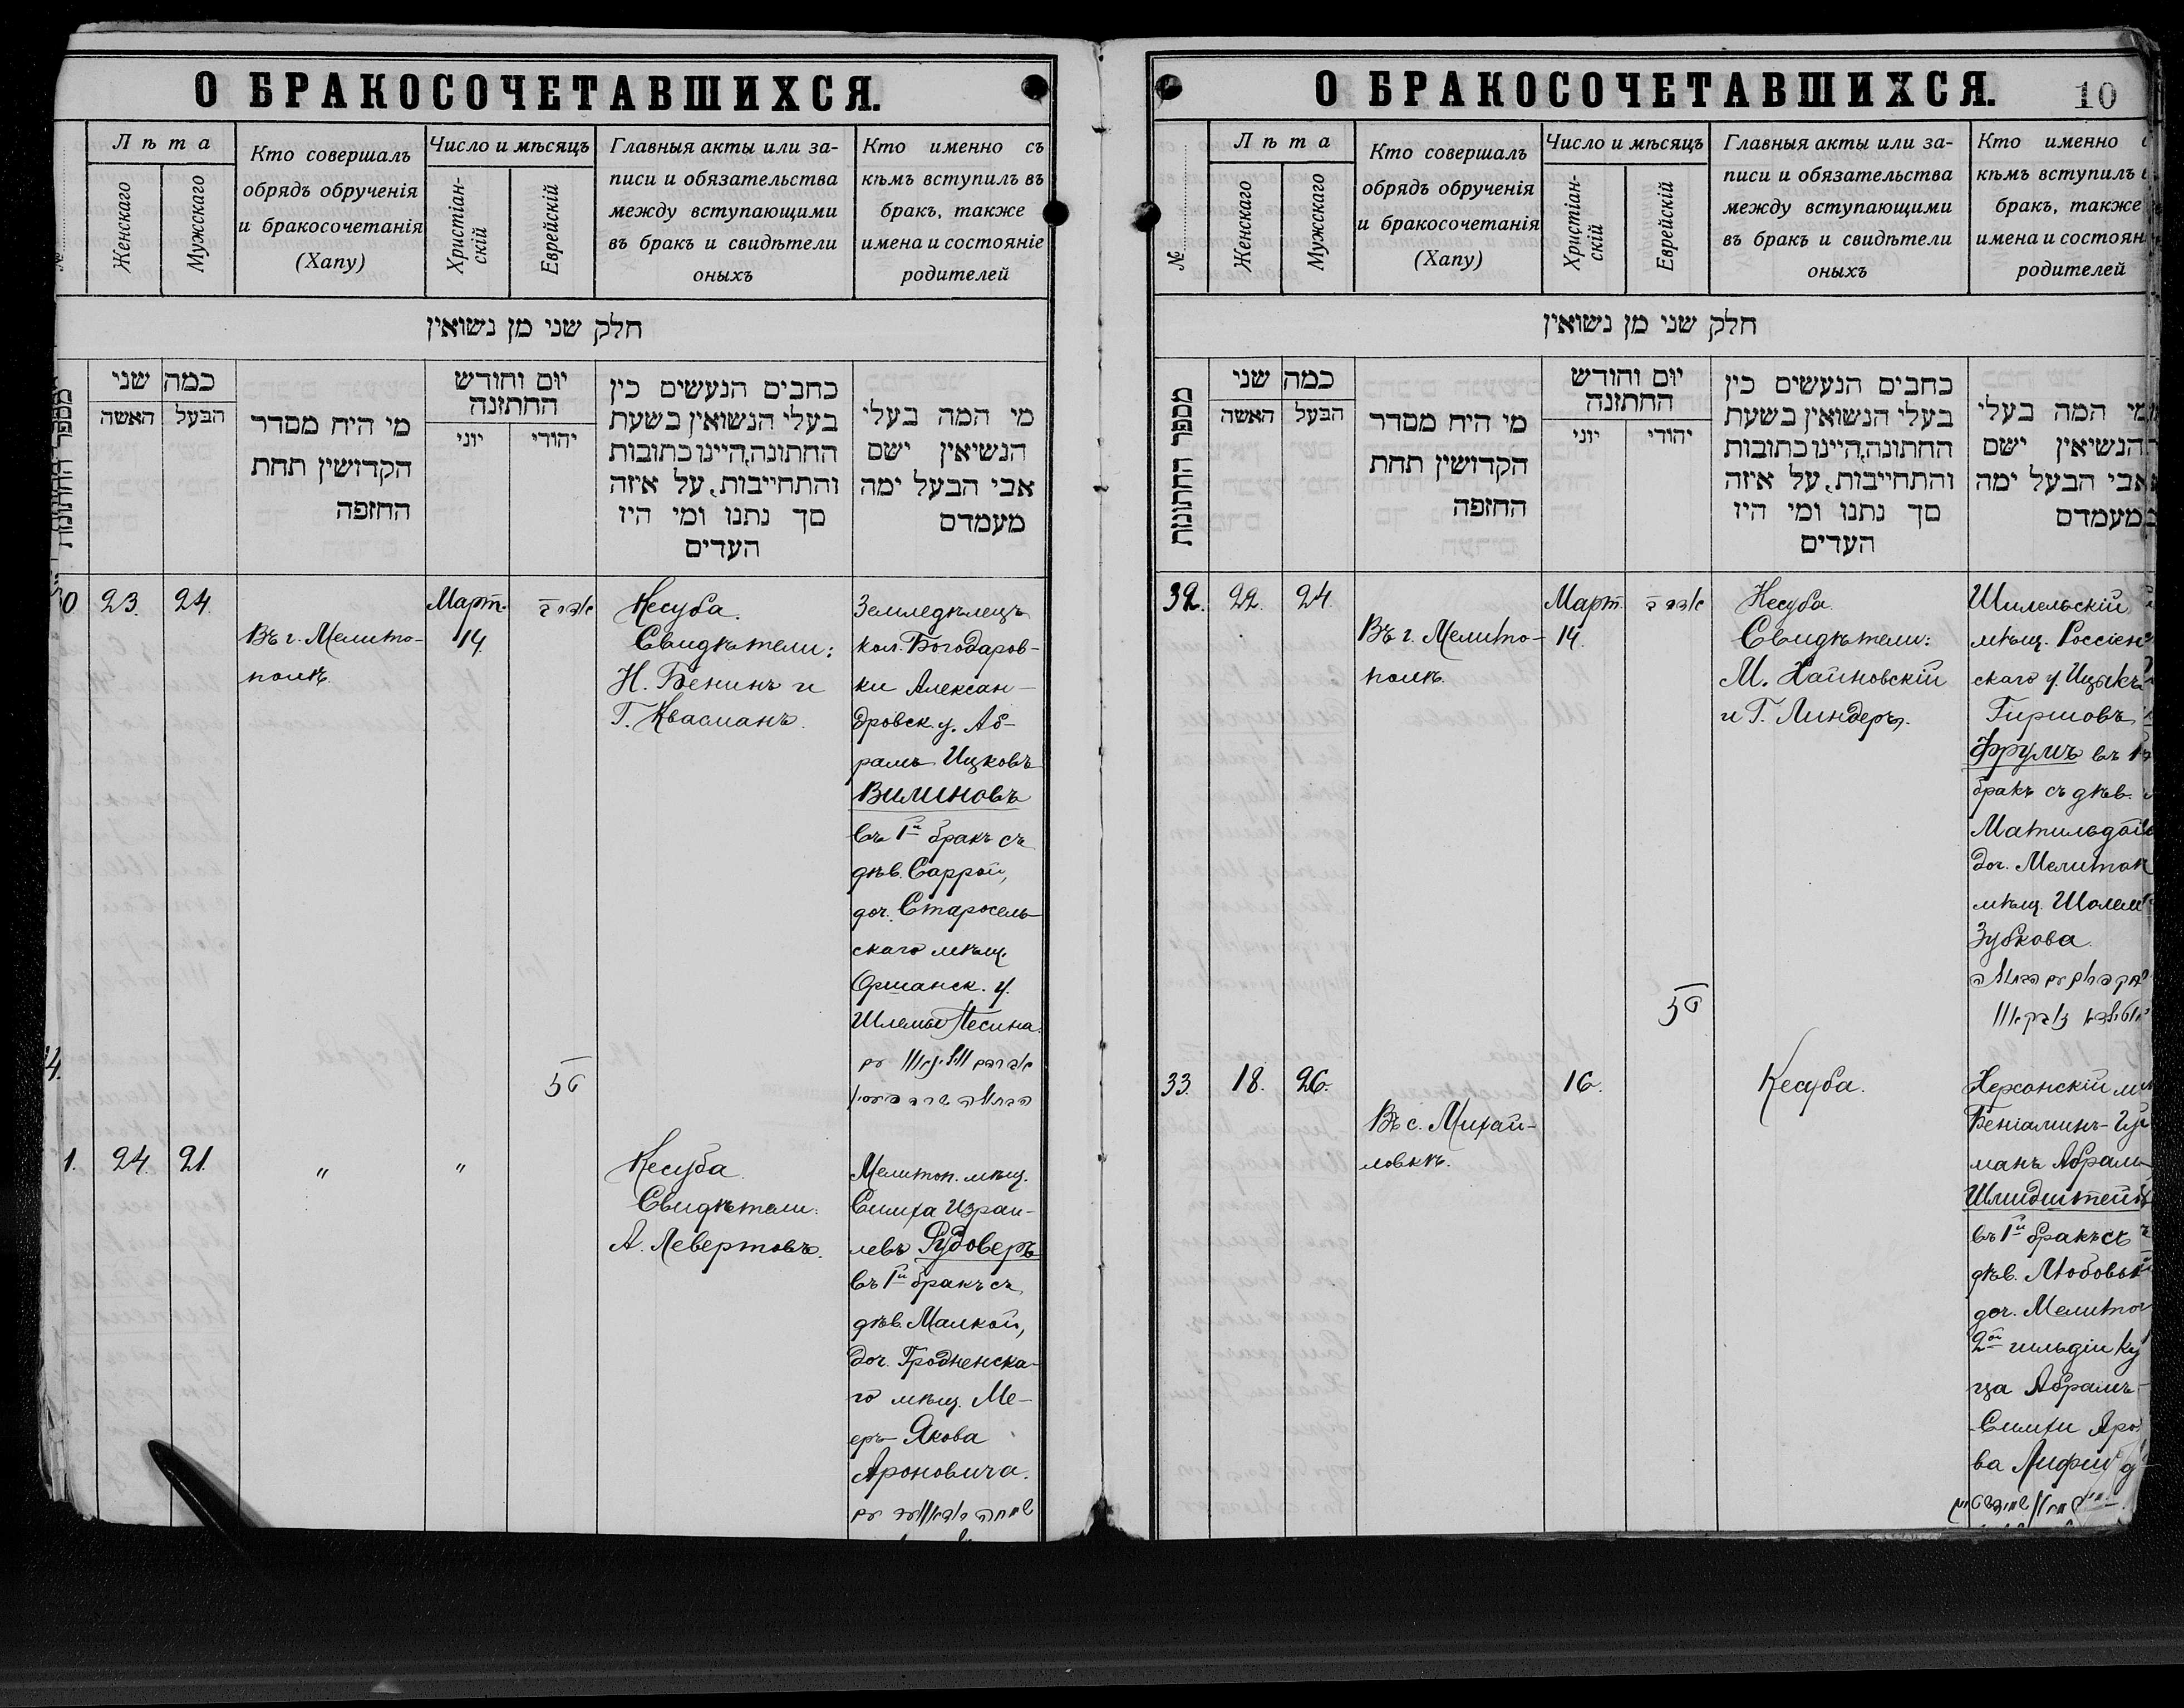 О БРАКОСОЧЕТАВШИХСЯ.
№
Лѣта
Женскаго
Мужскаго
Кто совершалъ
обрядъ обрученія
и бракосочетанія
(Хапу)
Число и мѣсяцъ
Христіан-
скій
Еврейскій
Главныя акты или за-
писи и обязательства
между вступающими
въ бракъ и свидѣтели
оныхъ
Кто именно съ
кѣмъ вступилъ въ
бракъ, также
имена и состояніе
родителей
חלק שני מן נשואין
מספר החתונות
כמה שני
האשה
הבעל
מי היח מסדר
הקדושין תחת
החזפה
יום וחודש
החתזנה
יוני
יהודי
כחבים הנעשים כין
בעלי הנשואין בשעת
החתונה,היינו כתובות
והתחייבות, על איזה
סך נתנו ומי היז
העדים
מי המה בעלי
הנשיאין ישם
אבי הבעל ימה
מעמדם
0 23. 24.
Въ г. Мелито-
полѣ.
Март.
14.
Кесуба.
Свидѣтели:
Н. Бенинъ и
Г. Квасманъ.
Земледѣлецъ
кол. Богодаров-
ки Алексан-
дровск. у. Аб-
рамъ Ицковъ
Вилиновъ
въ 1й бракъ съ
дѣв. Саррой,
доч. Старосель-
скаго мѣщ.
Оршанск. у.
Шлемы Песина.
4.
1. 24. 21.
"
"
Кесуба.
Свидѣтели:
А. Левертовъ.
Мелитоп. мѣщ.
Симха Израи-
левъ Рудоверъ
въ 1й бракъ съ
дѣв. Малкой,
доч. Гродненска-
го мѣщ. Ме-
еръ-Якова
Ароновича.
О БРАКОСОЧЕТАВШИХСЯ.
10
№
Лѣта
Женскаго
Мужскаго
Кто совершалъ
обрядъ обрученія
и бракосочетанія
(Хапу)
Число и мѣсяцъ
Христіан-
скій
Еврейскій
Главныя акты или за-
писи и обязательства
между вступающими
въ бракъ и свидѣтели
оныхъ
Кто именно с
кѣмъ вступилъ в
бракъ, также
имена и состоян
родителей
חלק שני מן נשואין
מספר החתונות
כמה שני
האשה
הבעל
מי היח מסדר
הקדושין תחת
החזפה
יום וחודש
החתזנה
יוני
יהודי
כחבים הנעשים כין
בעלי הנשואין בשעת
החתונה,היינו כתובות
והתחייבות, על איזה
סך נתנו ומי היז
העדים
מי המה בעלי
הנשיאין ישם
אבי הבעל ימה
מעמדם
32. 22. 24.
Въ г. Мелито-
полѣ.
Март.
14.
Кесуба.
Свидѣтели:
М. Хайновскій
и Г. Линдеръ.
Шилельскій
мѣщ. Россіен
скаго у. Ицыкъ
Гиршовъ
Фрумъ въ 1й
бракъ съ дѣв.
Матильдой
доч. Мелитоп
мѣщ. Шолем
Зубкова.
33. 18. 26.
Въ с. Михай-
ловкѣ.
16.
Кесуба.
Херсонскій м
Беніаминъ-Гу
манъ Абрам
Шмидштейн
въ 1й бракъ съ
дѣв. Любовью
доч. Мелитоп
2ой гильдіи ку
ца Абрамъ-
-Симхи Аро
ва